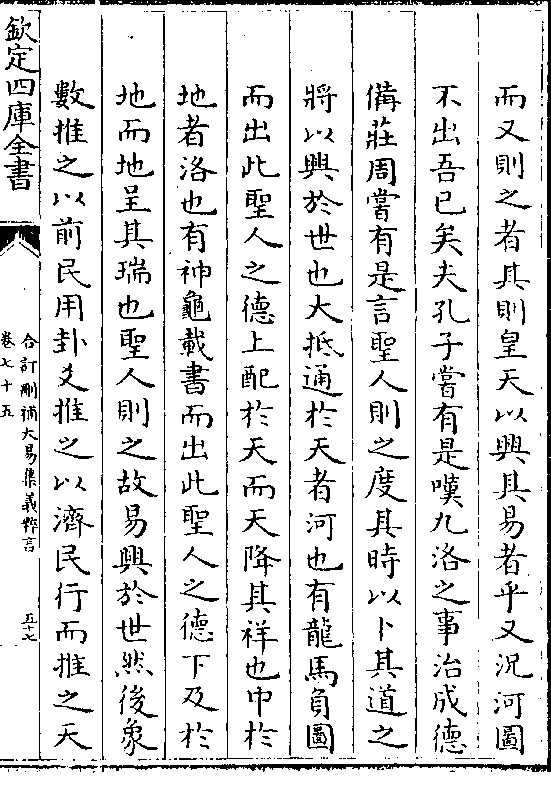 而又則之者其則皇天以興其易者乎又況河圖
不出吾已矣夫孔子嘗有是嘆九洛之事治成德
備莊周嘗有是言聖人則之度其時以卜其道之
將以興於世也大抵通於天者河也有龍馬負圖
而出此聖人之德上配於天而天降其祥也中於
地者洛也有神龜載書而出此聖人之德下及於
地而地呈其瑞也聖人則之故易興於世然後象
數推之以前民用卦爻推之以濟民行而推之天
欽定四庫全書
合訂刪補大易集義粹言
卷七十五
五十七